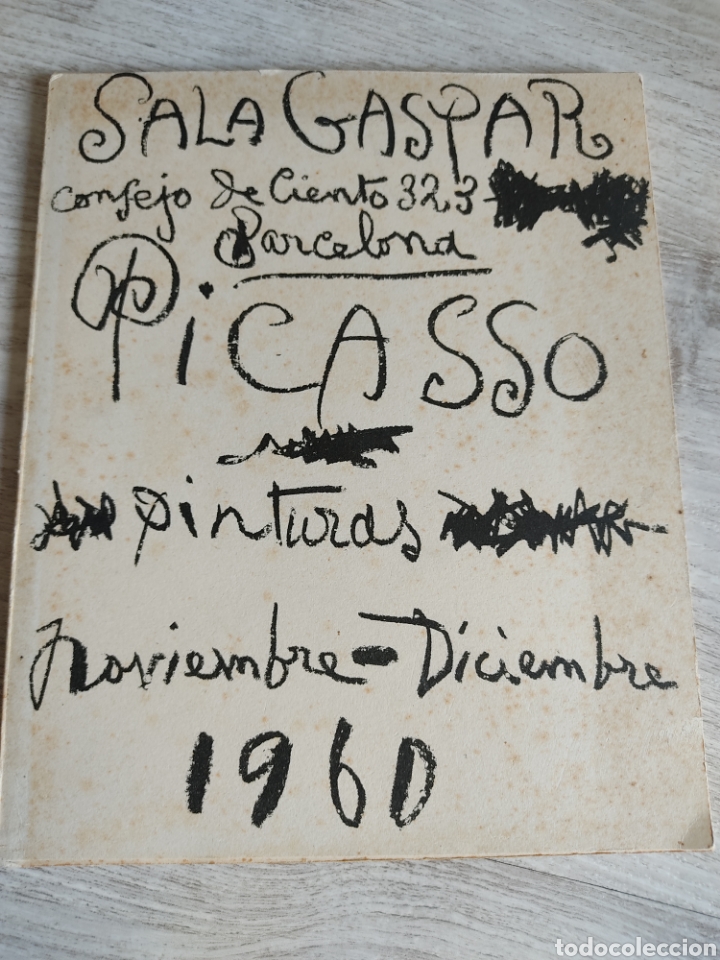 SALA GASPAR
Consejo de Ciento 323
Barcelona
PiCASSO
pinturas
noviembre - Diciembre
1960
todocoleccion